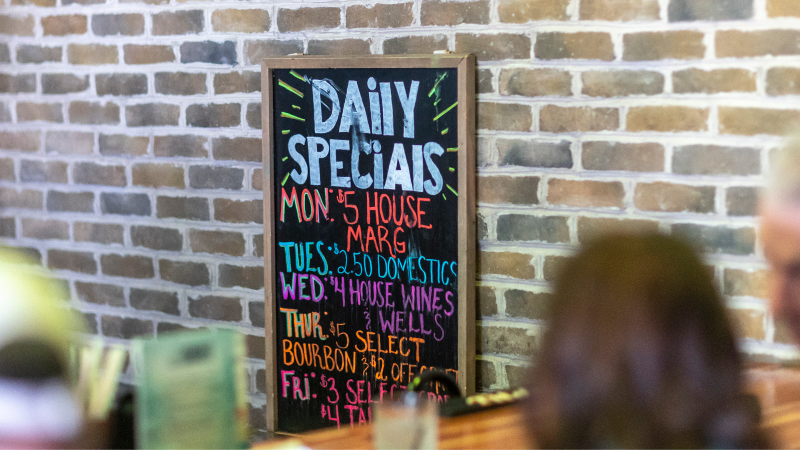 DAilY
SPECiAlS
MON: $5 HOUSE
MARG
TUES: $2.50 DOMESTICS
WED: $4 HOUSE WINES
& WELLS
THUR: $5 SELECT
BOURBON & $2 OFF
FRI: $3 SELECT
$4